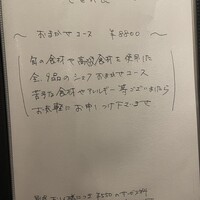 〜 おまかせコース ¥8800 〜
旬の食材や高級食材を使用した
全9品のシェフおまかせコース
苦手な食材やアレルギー等ございましたら
お気軽にお申しつけ下さいませ